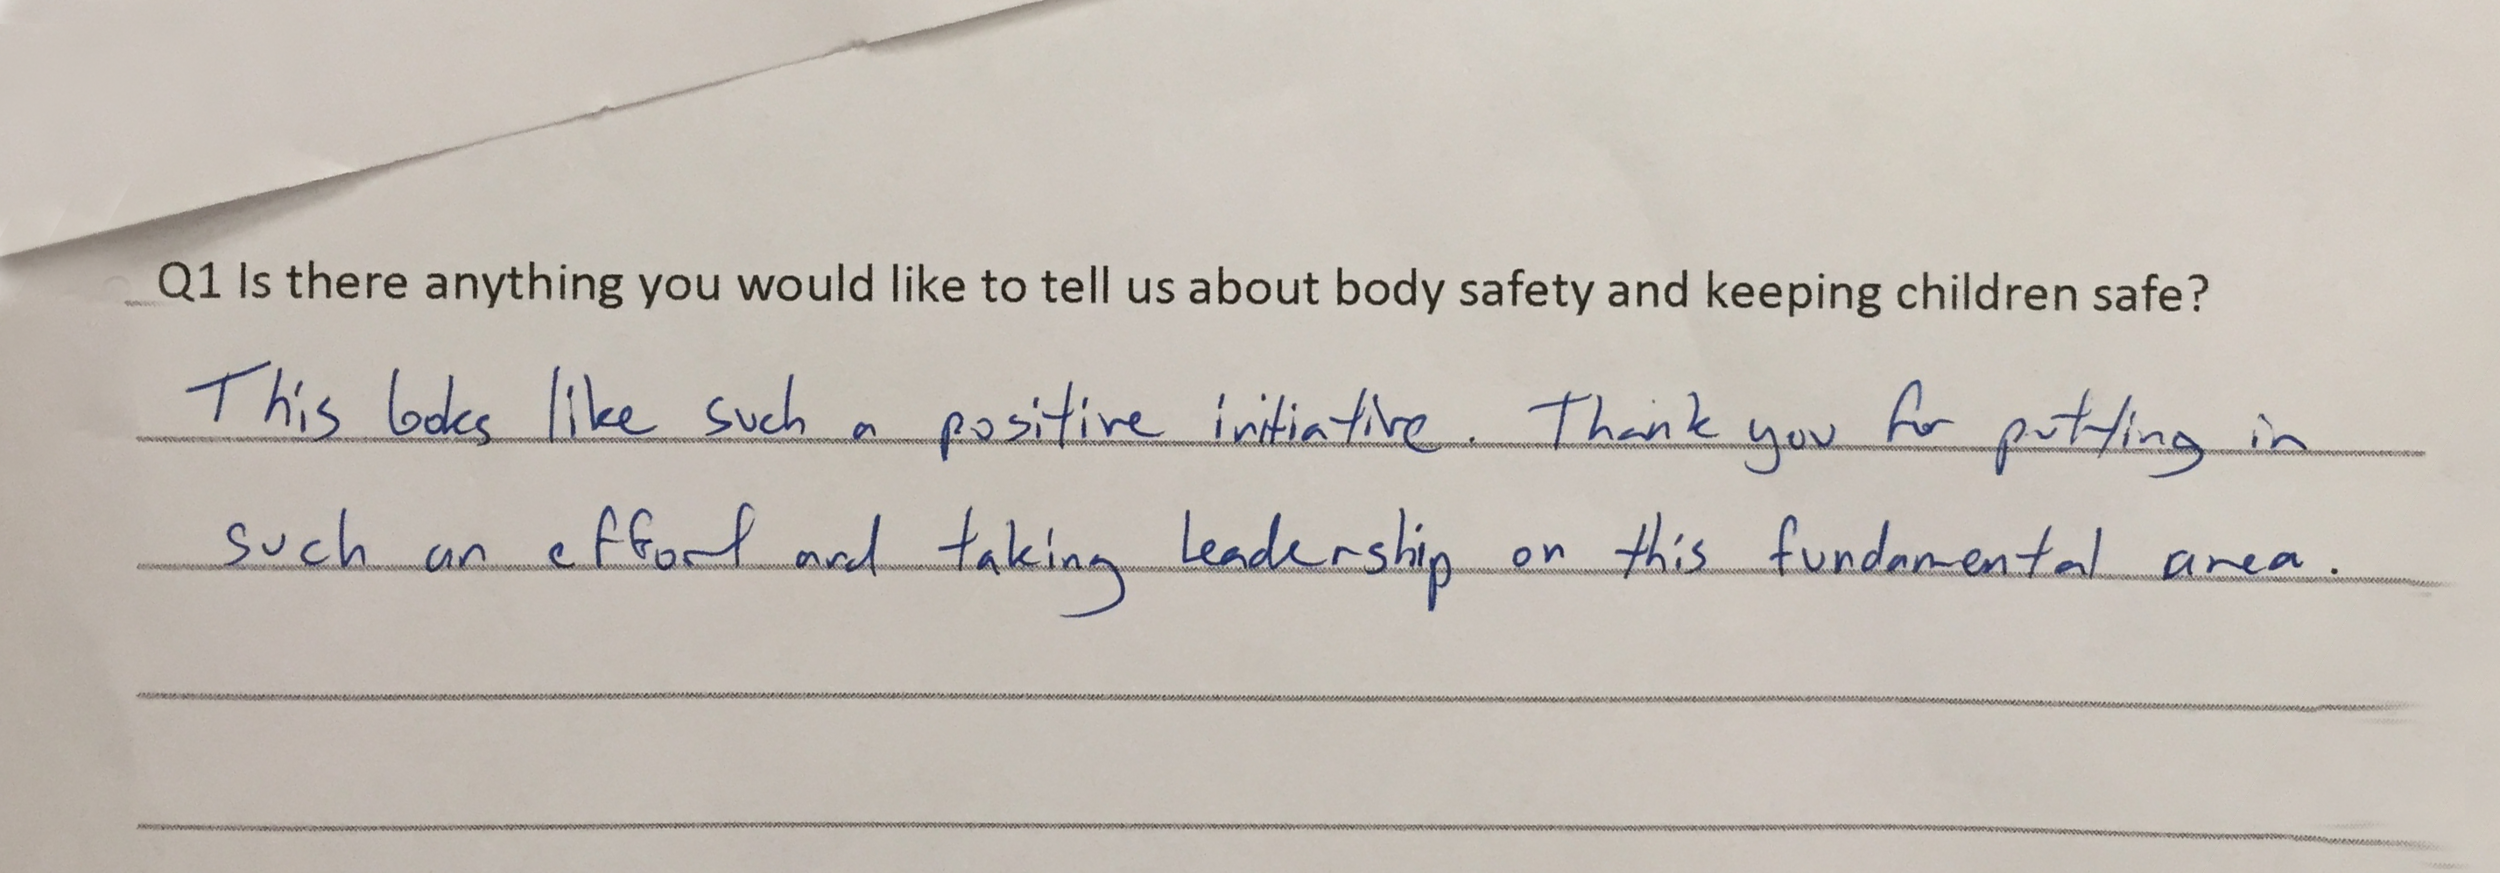 Q1 Is there anything you would like to tell us about body safety and keeping children safe?
This looks like such a positive initiative. Thank you for putting in
such an effort and taking leadership on this fundamental area.